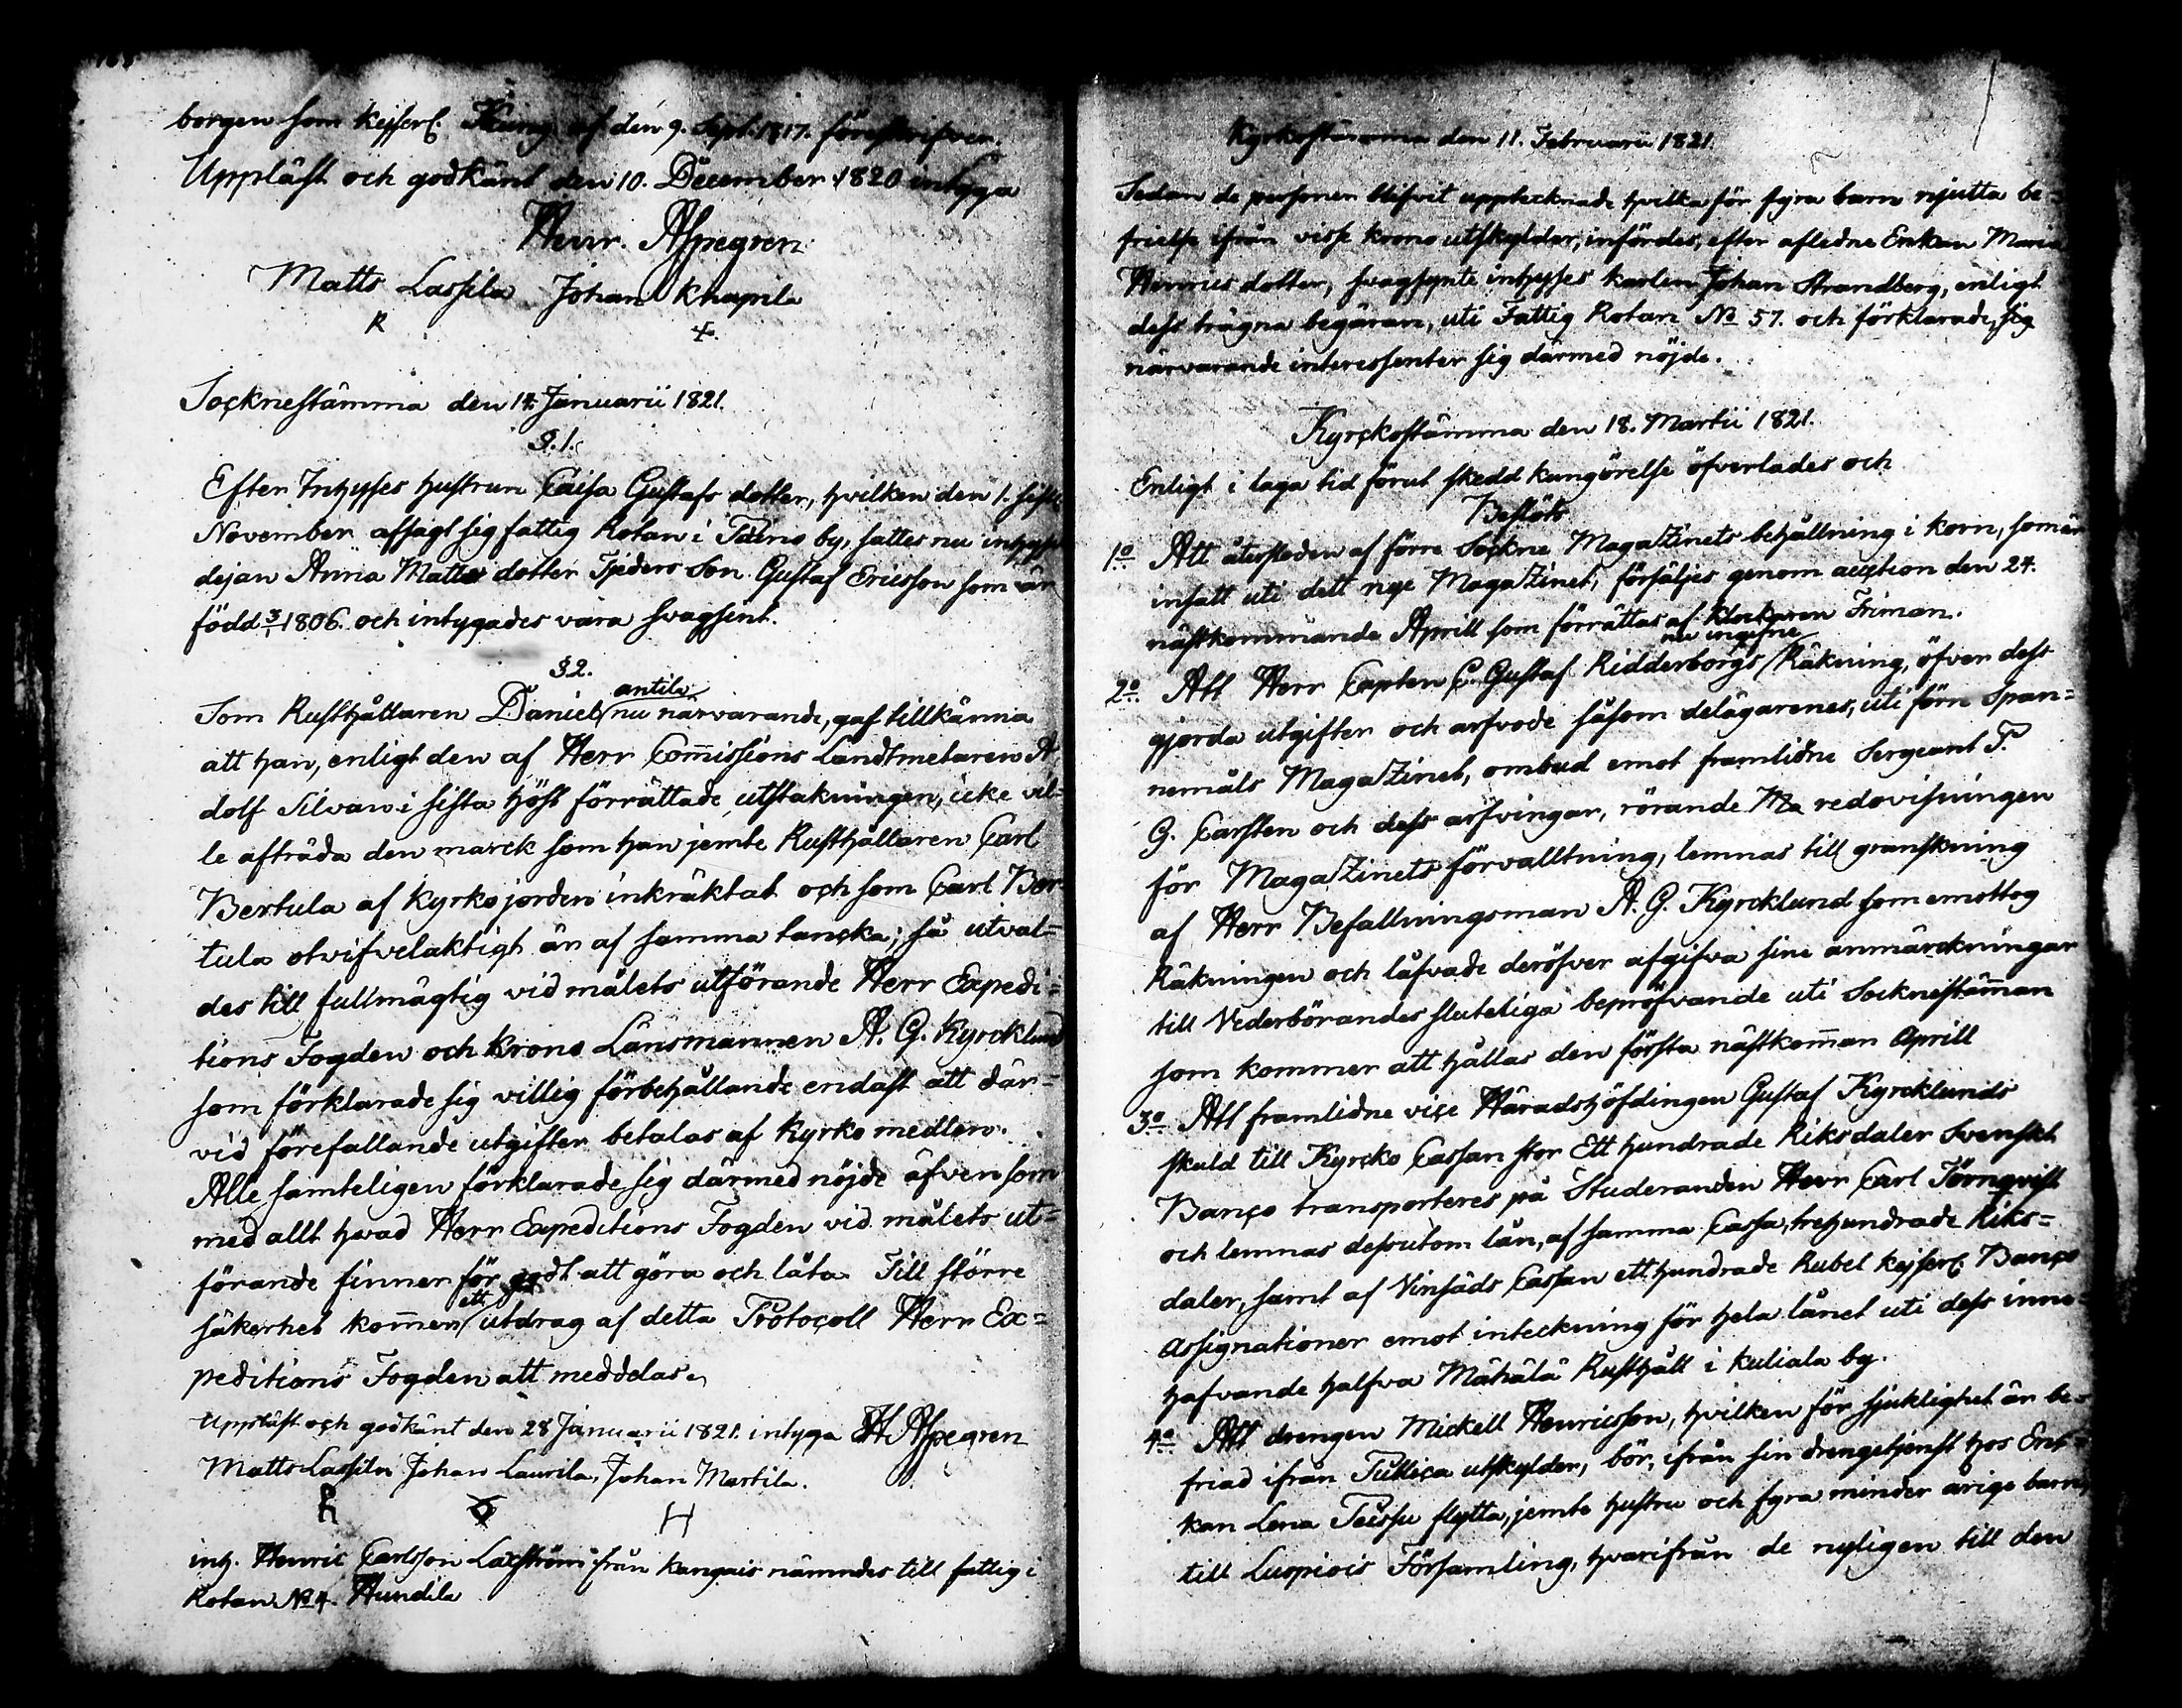 borgen som kejserl. Kung. af den 9. Sept. 1817. föreskrifver.
Uppläst och godkänt den 10. December 1820 intyga
Henr. Aspegren
Matts Lassila Johan Knapila
R +.
Socknestämma den 14. Januarii 1821.
§.1.
Efter Inhyses hustrun Caisa Gustafs dotter, hvilken den 1. siste
November afsagt sig fattig Rotan i by, sattes nu inhyses
dejan Anna Matts dotter Tjeders Son Gustaf Ericsson som är
född 3/1 1806. och intygades vara svagsint.
§2.
antila
Som Rusthållaren Daniel nu närvarande, gaf tillkänna
att han, enligt den af Herr Com̄issions Landtmetaren A
dolf Silvan i sista höst förrättade utstakningen, icke vil-
le afträda den marck som han jemte Rusthållaren Carl
Bertula af kyrkojorden inkräktat och som Carl Ber-
tula otvifvelaktigt är af samma tancka; så utval=
des till fullmägtig vid målets utförande Herr Expedi=
tions Fogden och Krono Länsmannen A. G. Kyrcklund
som förklarade sig villig förbehållande endast att där=
vid förefallande utgifter betalas af kyrko medlen.
Alle samteligen förklarade sig därmed nöjde äfven som
med allt hvad Herr Expeditions Fogden vid målets ut=
förande finner för godt att göra och låta. Till större
ett
säkerhet kom̄er utdrag af detta Protocoll Herr Ex=
peditions Fogden att meddelas.
Uppläst och godkänt den 28 Januarii 1821. intyga H Aspegren
Matts Lassila Johan Laurila, Johan Martila.
R H
inh. Henric Carlsson Laxström från Kangais nämndes till fattig i
Rotan No 4. Hundila
Kyrkostämma den 11. Februarii 1821.
Sedan de personer blifvit upptecknade hvilka för fyra barn njutta be=
frielse ifrån visse krono utskylder, infördes, efter afledne Enkan Maria
Henrics dotter, svagsynte inhyses karlen Johan Strandberg, enligt
dess trägna begäran, uti Fattig Rotan No 57. och förklarade sig
närvarande interessenter sig därmed nöjde.
Kyrckostämma den 18. Martii 1821.
Enligt i laga tid förut skedd kungörelse öfverlades och
Beslöts
1o Att återstoden af förre Sockne Magatzinets behållning i korn, som är
insatt uti dett nye Magatzinet, försäljes genom auction den 24.
nästkommande Aprill som förrättas af Klockaren Friman.
nu ingifne
2o Att Herr Capten C. Gustaf Ridderborgs Räkning, öfver dess
gjorda utgifter och arfvode såsom delägarenes, uti förn Span=
nemåls Magatzinet, ombud emot framlidne Sergeant P.
G. Carsten och dess arfvingar, rörande redovisningen
för Magatzinets förvalltning, lemnas till granskning
af Herr Befallningsman A. G. Kyrcklund som emottog
Räkningen och låfvade deröfver afgifva sine anmärckningar
till Vederbörandes sluteliga bepröfvande uti Socknestäm̄an
som kommer att hållas den första nästkom̄an Aprill
3o Att framlidne vice Häradshöfdingen Gustaf Kyrcklunds
skuld till Kyrcko Cassan stor Ett hundrade Riksdaler Svenskt
Banço transporteres på Studeranden Herr Carl Törnqvist
och lemnas dessutom lån, af samma Cassa, trehundrade Riks=
daler, samt af Vinsäds Cassan ett hundrade Rubel kejserl. Banço
Assignationer emot inteckning för hela lånet uti dess inne=
hafvande halfva Mähälä Rusthåll i Kuliala by.
4o Att drengen Mickell Henricsson, hvilken för sjuklighet är be=
friad ifrån Publica utskylder, bör, ifrån sin drengetjenst hos Enc=
kan Lena flytta, jemte hustru och fyra minder årige barn,
till Luopiois Församling, hvarifrån de nyligen till den